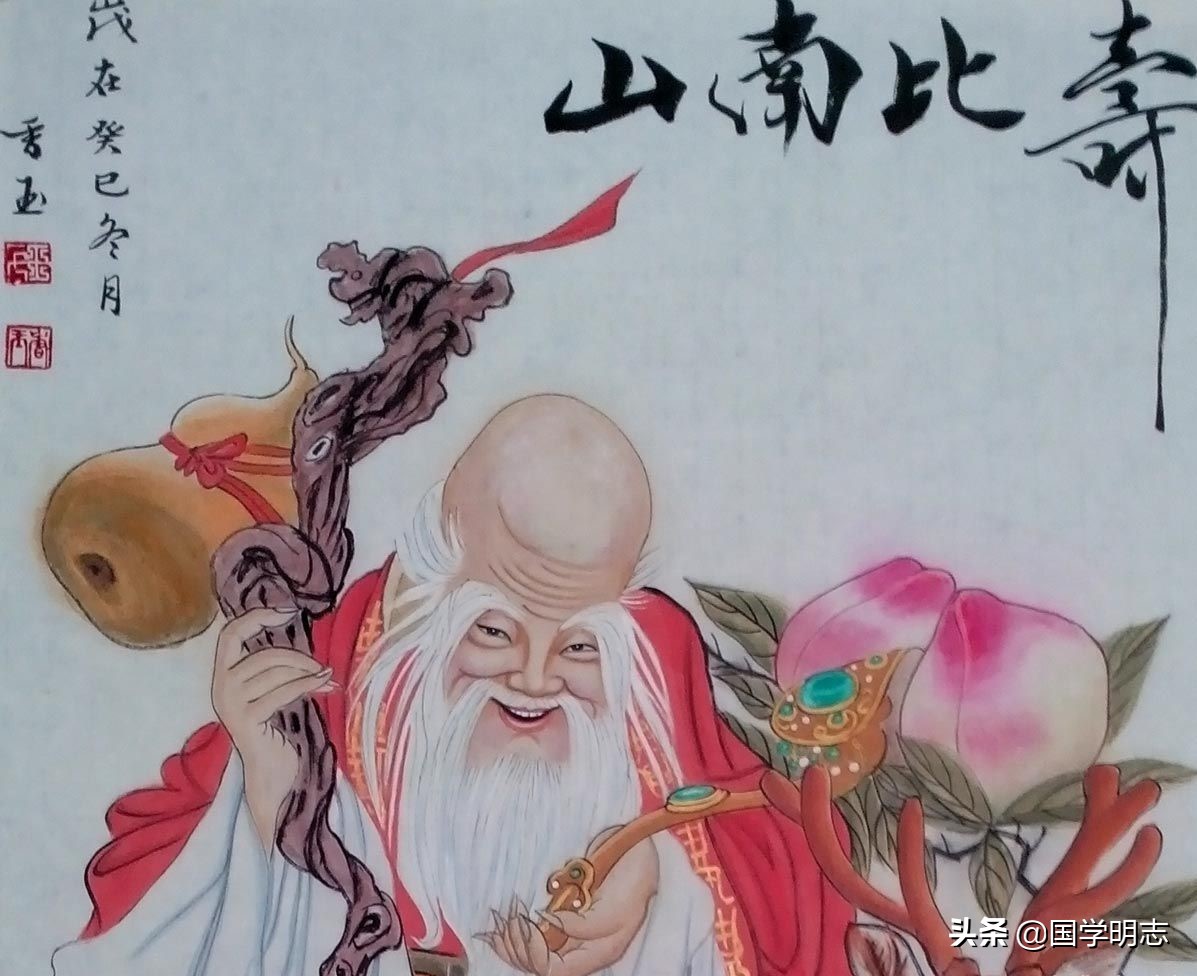 壽比南山
歲在癸巳冬月
香玉
头条 @国学明志